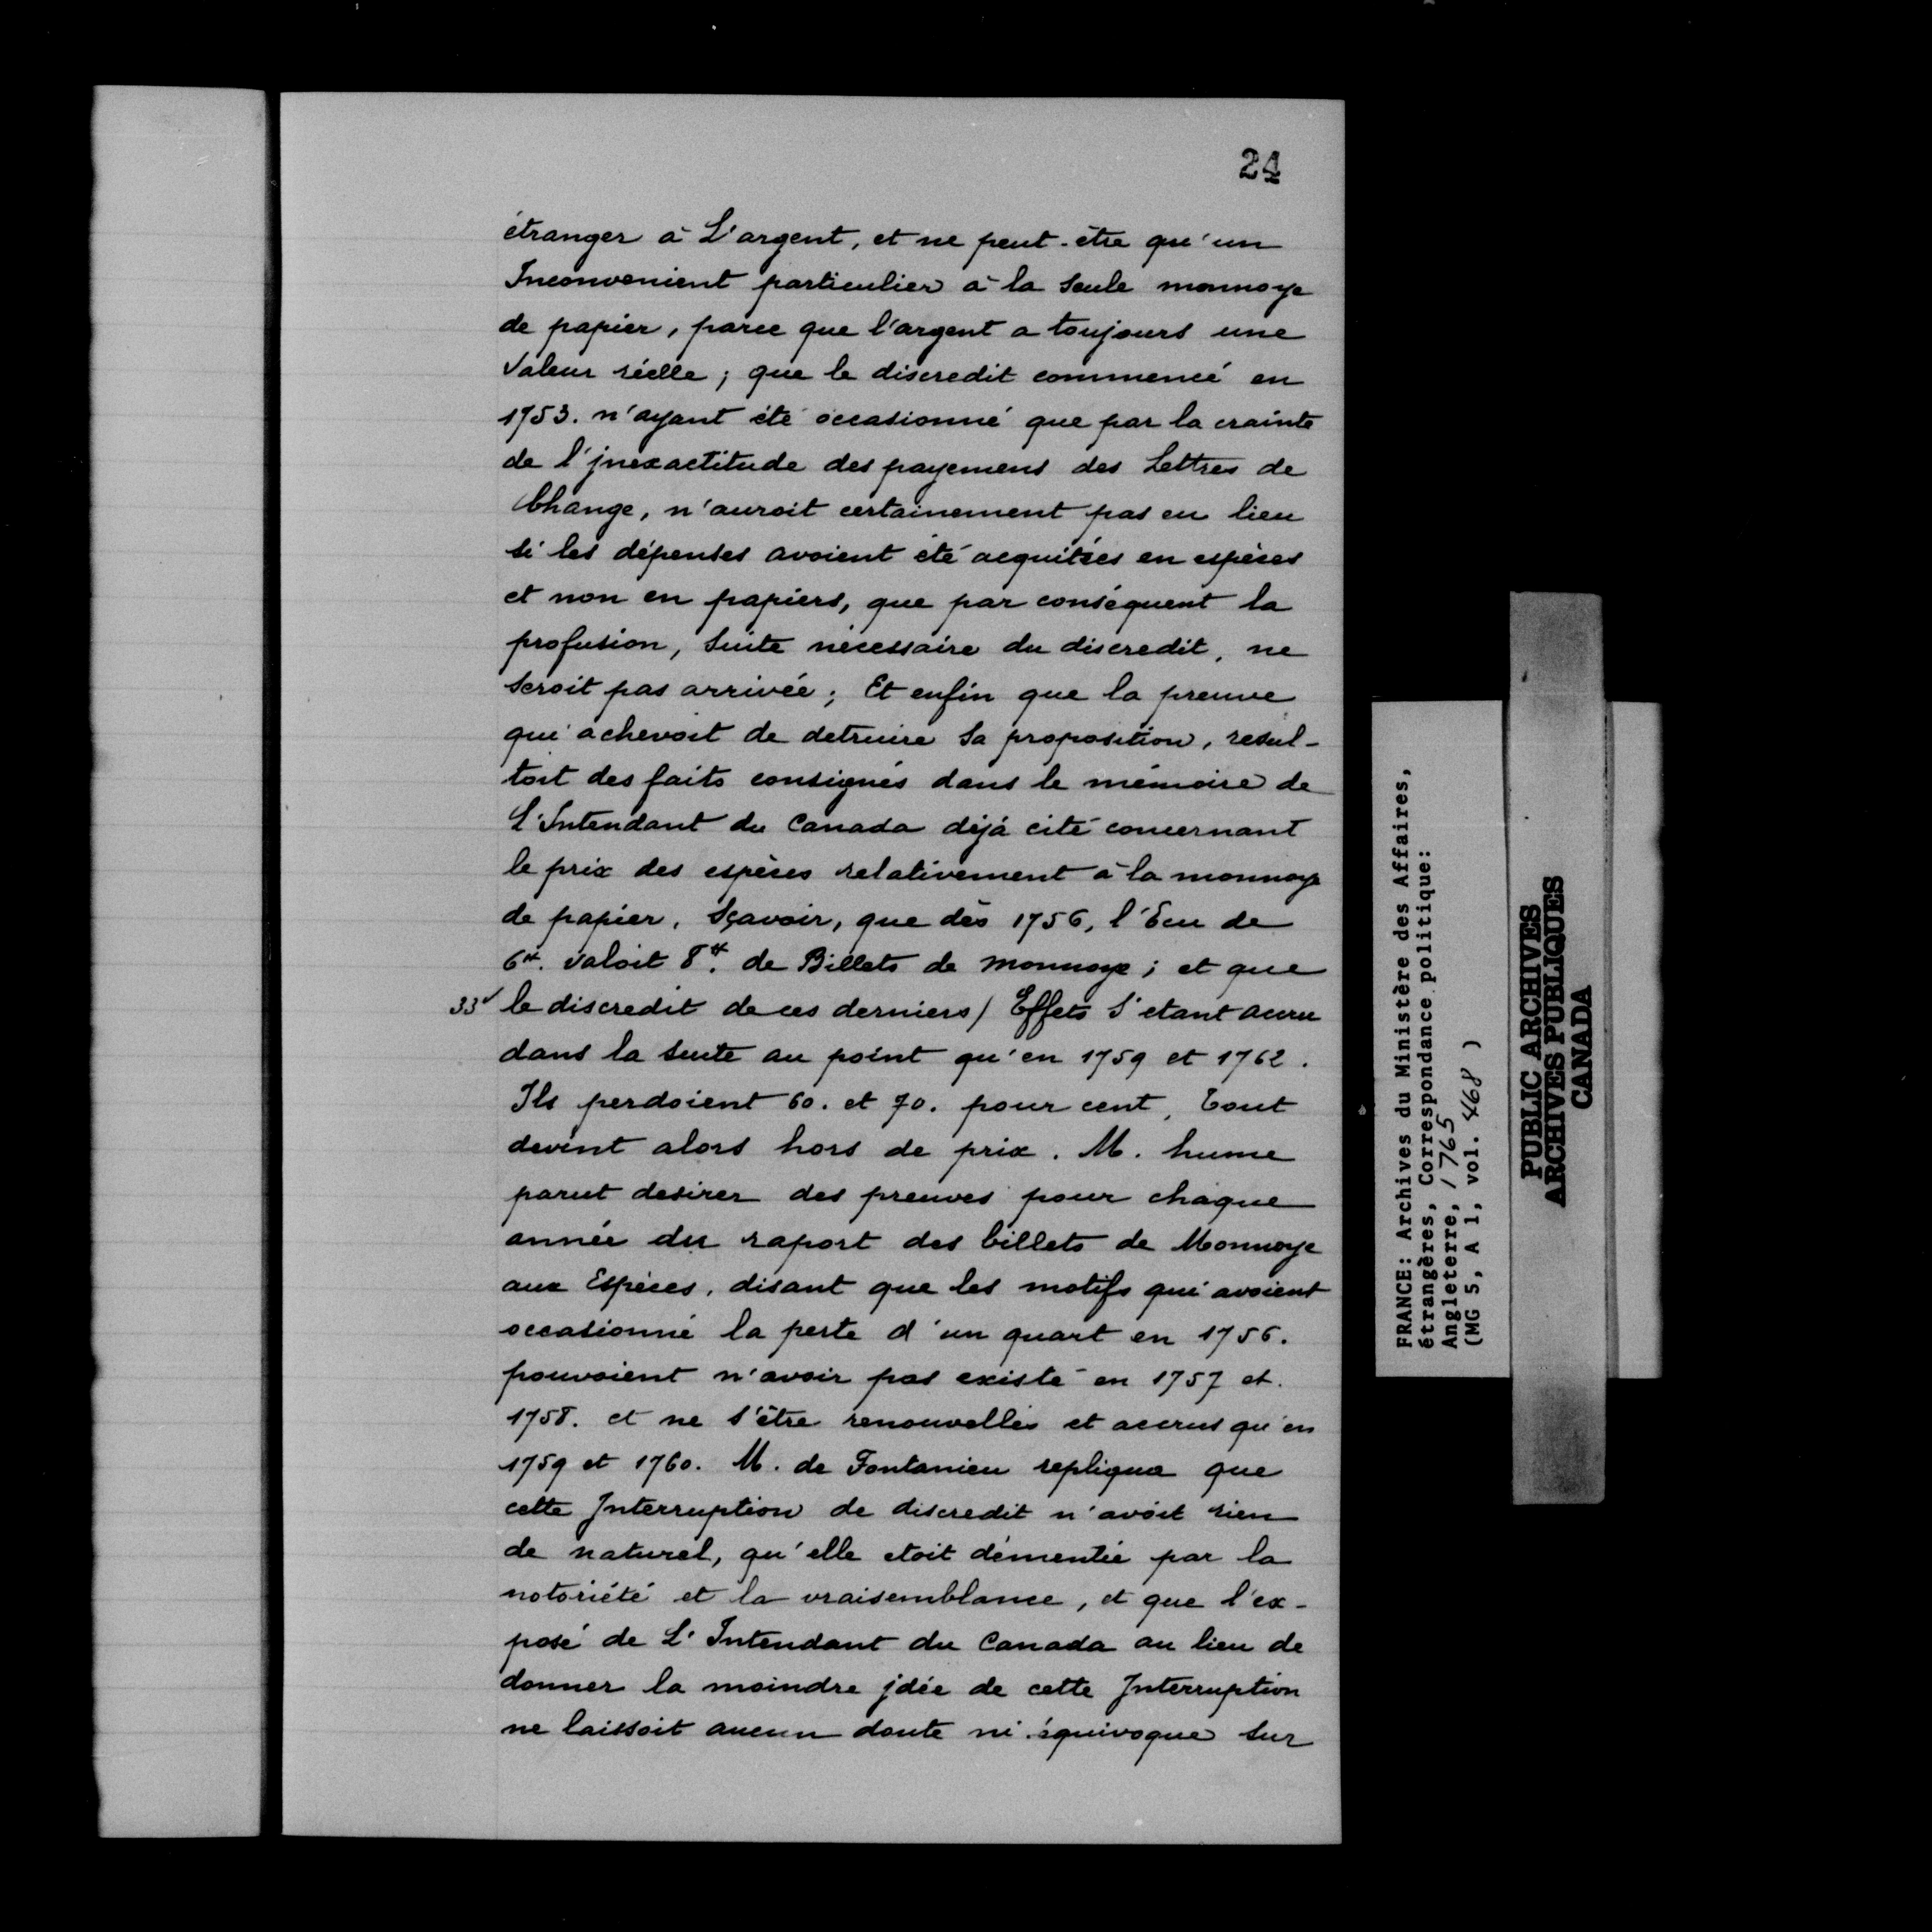 24
étranger à L'argent, et ne peut-être qu'un
Inconvenient particulier à la seule monnoye
de papier, parce que l'argent a toujours une
Valeur réelle; que le discredit commencé en
1753. n'ayant été occasionné que par la crainte
de l'jnexactitude des payemens des Lettres de
Change, n'auroit certainement pas eu lieu
si les dépenses avoient été acquitées en espèces
et non en papiers, que par conséquent la
profusion, Suite nécessaire du discredit, ne
seroit pas arrivée; Et enfin que la preuve
qui achevoit de detruire Sa proposition, resul-
toit des faits consignés dans le mémoire de
L'Intendant du Canada déjà cité concernant
le prix des espèces relativement à la monnoye
de papier, Sçavoir, que dès 1756, l'Ecu de
6#. valoit 8#. de Billets de monnoye; et que
33v le discredit de ces derniers / Effets S'etant accru
dans la suite au point qu'en 1759 et 1762.
Ils perdoient 60. et 70. pour cent, Tout
devint alors hors de prix. M. hume
parut desirer des preuves pour chaque
année du raport des billets de Monnoye
aux Espèces, disant que les motifs qui avoient
occasionné la perte d'un quart en 1756.
pouvoient n'avoir pas existé en 1757 et
1758. et ne s'être renouvellés et accrus qu'en
1759 et 1760. M. de Fontanieu repliqua que
cette Interruption de discredit n'avoit rien
de naturel, qu'elle etoit démentie par la
notoriété et la vraisemblance, et que l'ex-
posé de L'Intendant du Canada au lieu de
donner la moindre jdée de cette Interruption
ne laissoit aucun doute ni équivoque sur
FRANCE: Archives du Ministère des Affaires,
étrangères, Correspondance politique:
Angleterre, 1765
(MG 5, A 1, vol. 468 )
PUBLIC ARCHIVES
ARCHIVES PUBLIQUES
CANADA